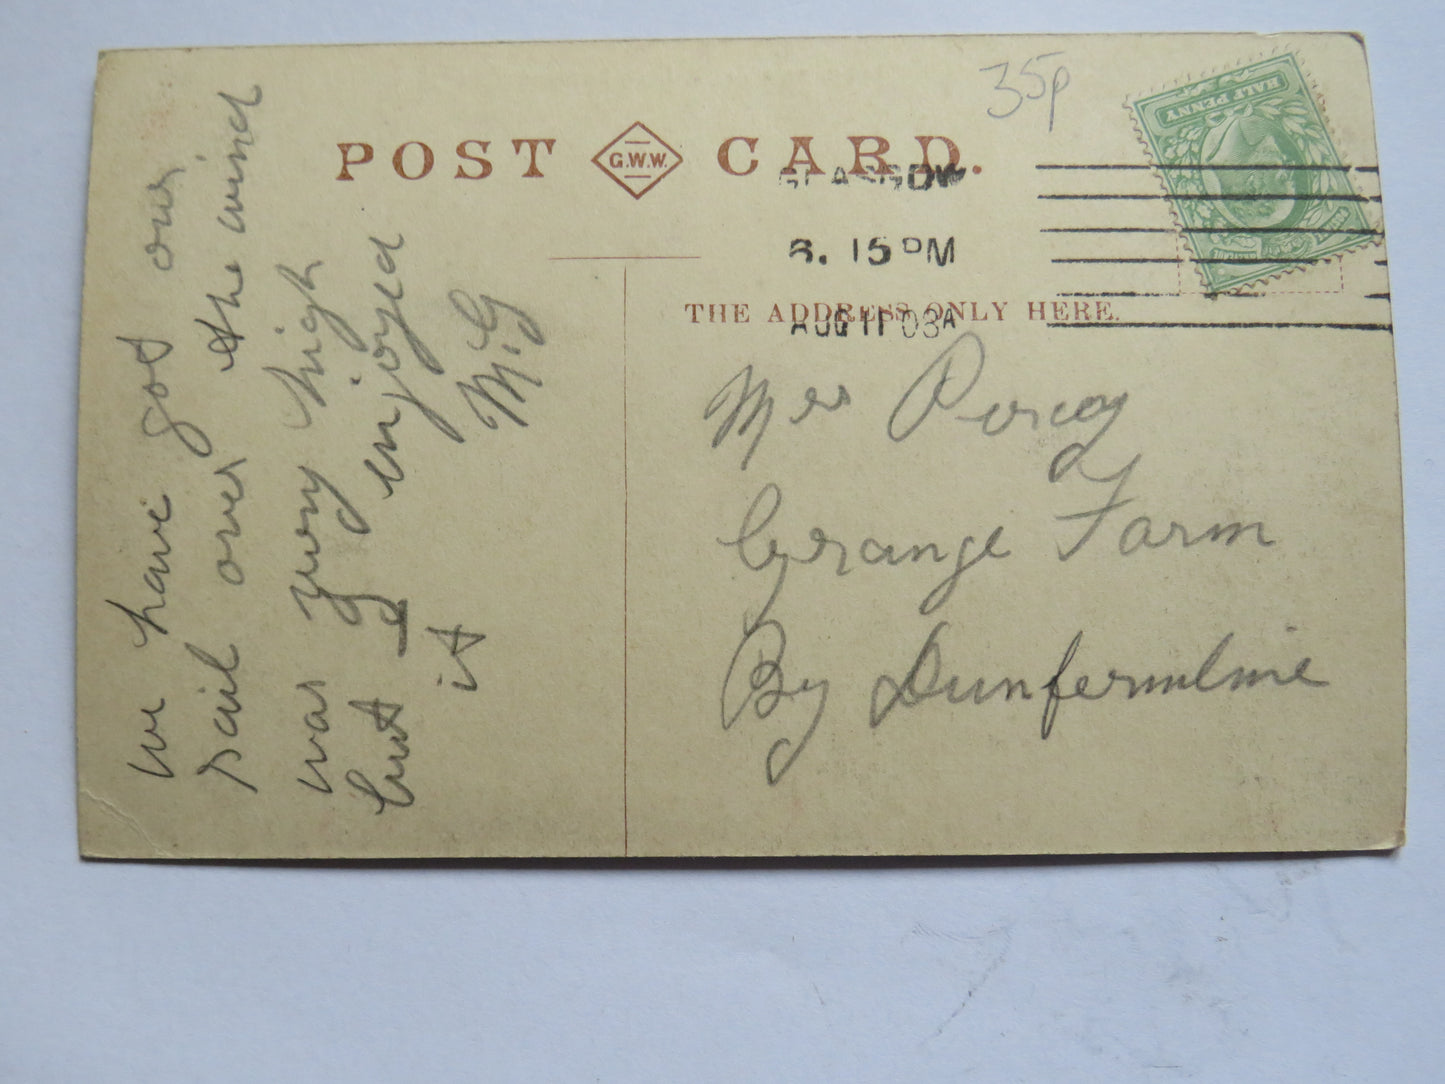 35p
POST G.W.W. CARD.
HALF PENNY
GLASGOW
8. 15 PM
AUG 11 08A
THE ADDRESS ONLY HERE.
we have got our
sail over & the wind
was very high
but I enjoyed
it M.G
Mrs Percy
Grange Farm
By Dunfermline